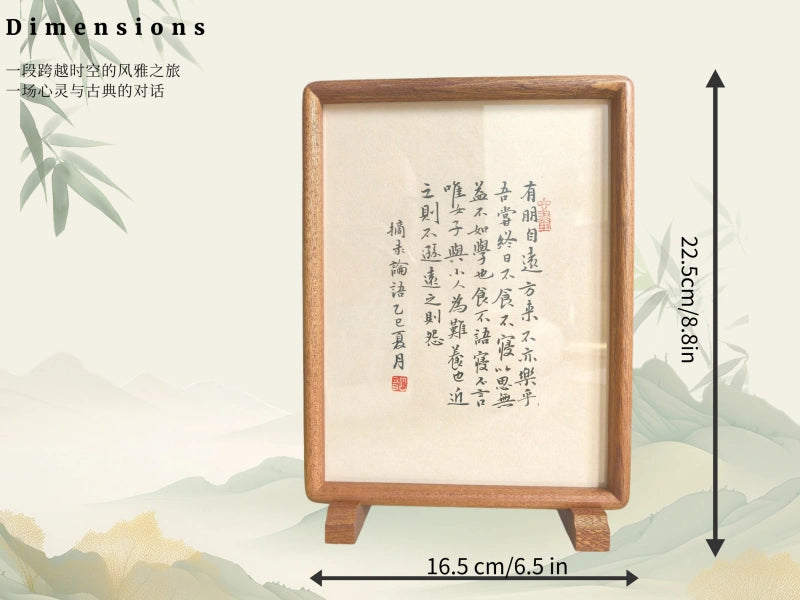 Dimensions
一段跨越时空的风雅之旅
一场心灵与古典的对话
有朋自遠方来不亦樂乎
吾嘗終日不食不寢以思無
益不如學也食不語寢不言
唯女子與小人為難養也近
之則不遜遠之則怨
摘录論語乙巳夏月
22.5cm/8.8in
16.5 cm/6.5 in